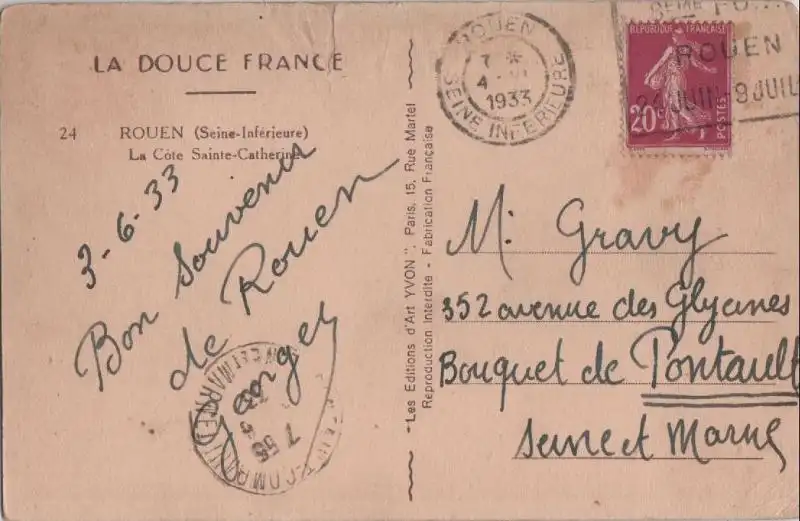 LA DOUCE FRANCE
24 ROUEN (Seine-Inférieure)
La Côte Sainte-Catherine
3-6-33
Bon Souvenir
de Rouen
Georges
"Les Editions d'Art YVON", Paris, 15, Rue Martel
Reproduction Interdite - Fabrication Française
ROUEN
7
4
1933
SEINE INFERIEURE
ROUEN
JUIN-9 JUIL
REPUBLIQUE FRANÇAISE
20c
POSTES
M. Gravy
352 avenue des Glycines
Bouquet de Pontault
Seine et Marne